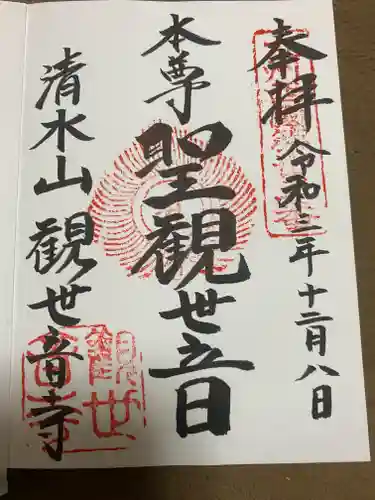 奉拝
令和三年十二月八日
本尊
聖観世音
清水山観世音寺